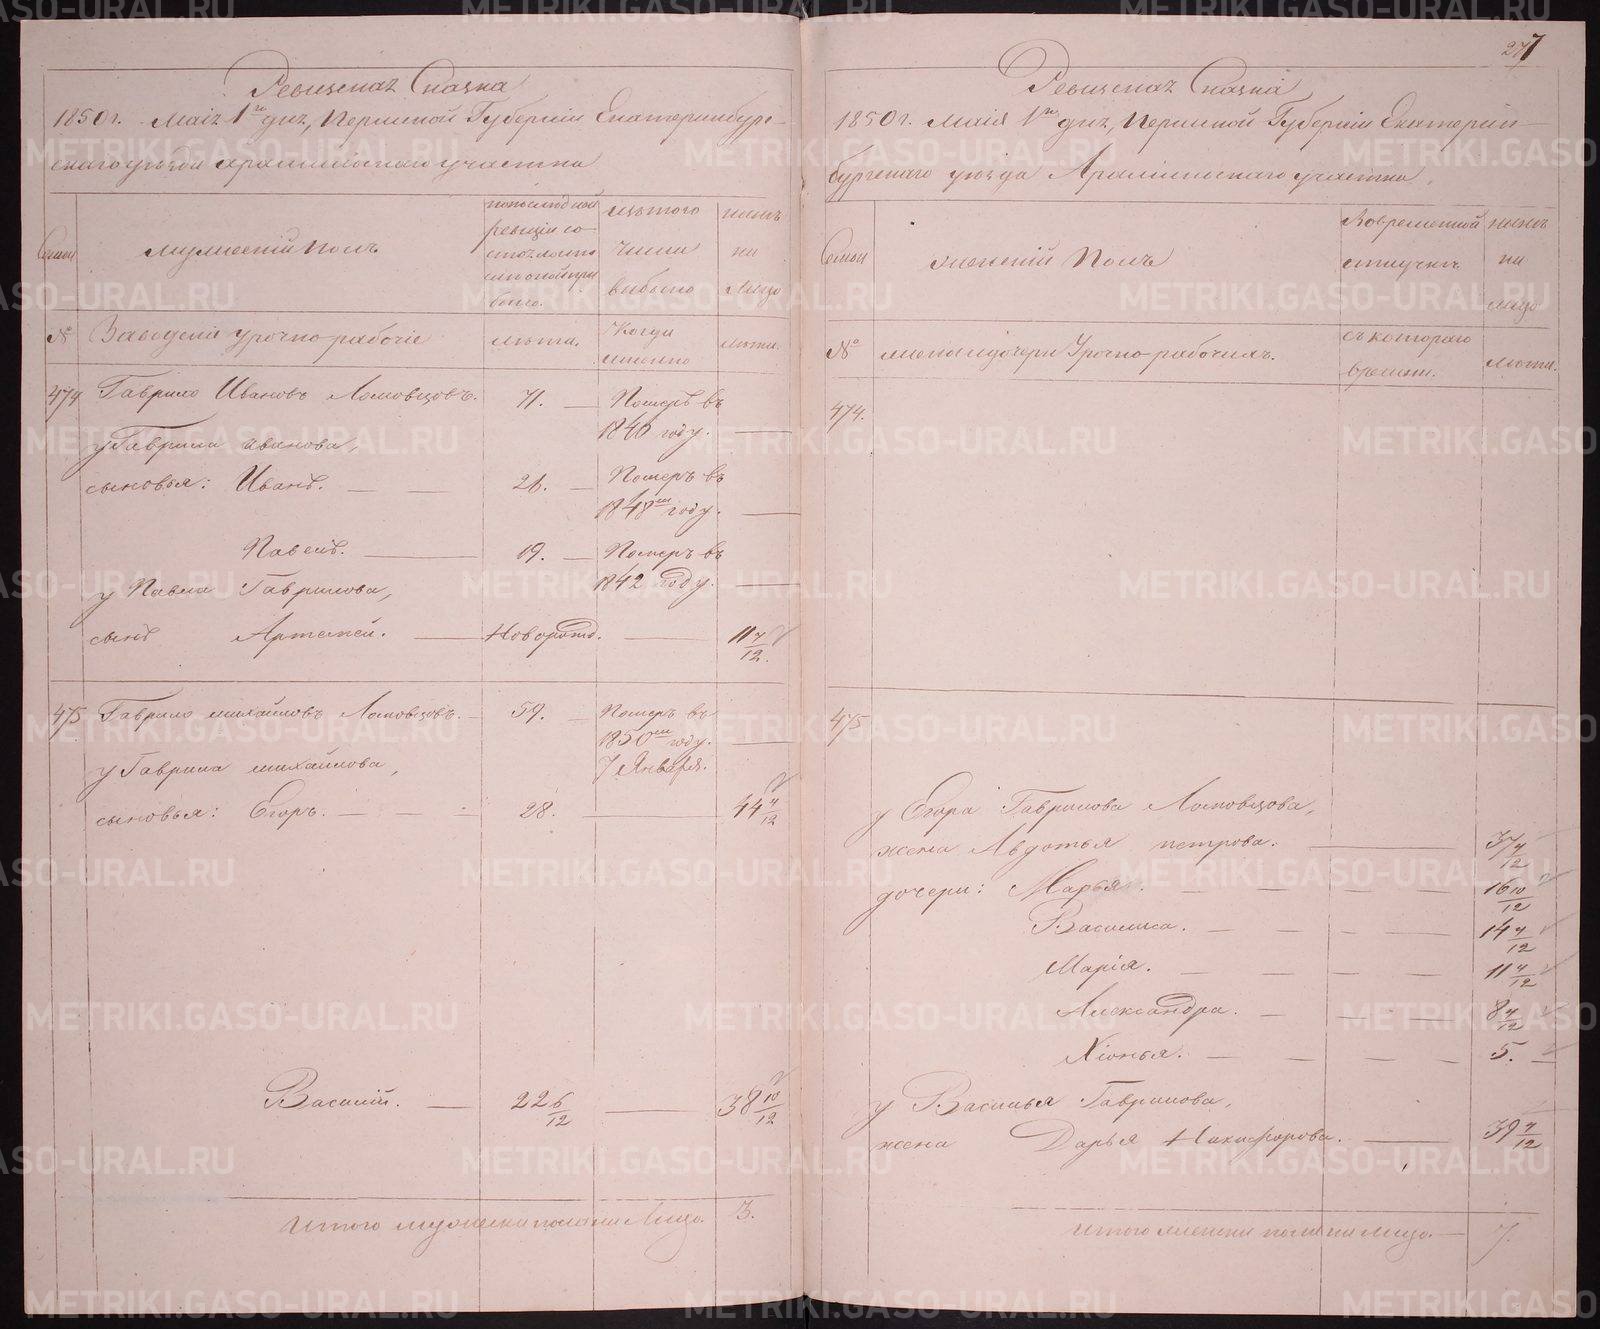 277
Ревизская Сказка
1850 г. Маія 1го дня, Пермской Губерніи Екатеринбург-
скаго уезда Арамильскаго участка
Семьи
Мужескій Полъ
по последней ревизіи состояло и после оной прибыло
изъ того числа выбыло
ныне на лицо
№
Заводскіе урочно-рабочіе
лета.
Когда именно
лета.
474 Гаврило Ивановъ Ломовцовъ. 71. — Померъ въ
1840 году. —
у Гаврила Иванова,
сыновья: Иванъ. — — 21. — Померъ въ
1848мъ году. —
Павелъ. — 19. — Померъ въ
1842 году. —
у Павла Гаврилова,
сынъ Артемей. — Новорожд. — 11 7/12.
475 Гаврило Михайловъ Ломовцовъ. — 59. — Померъ въ
1850мъ году. —
7 Января.
у Гаврила Михайлова,
сыновья: Егоръ. — — — 28. — 44 4/12
Василій. — 22 6/12 — 38 10/12
Итого мужеска пола на Лицо. 3.
Ревизская Сказка
1850 г. Маія 1го дня, Пермской Губерніи Екатерин-
бургскаго уезда Арамильскаго участка.
Семьи
Женскій Полъ
Во временной отлучке
ныне на лицо
№
жены и дочери Урочно-рабочихъ.
съ котораго времени.
лета.
474.
475
у Егора Гаврилова Ломовцова,
жена Авдотья Петрова. — 37 4/12
дочери: Марья. — — — — 16 10/12
Василиса. — — — — 14 4/12
Марія. — — — — 11 4/12
Александра. — — — 8 4/12
Хіонья. — — — — 5. —
у Василья Гаврилова,
жена Дарья Никифорова. — 39 4/12
Итого женска пола на лицо. — 7.
METRIKI.GASO-URAL.RU